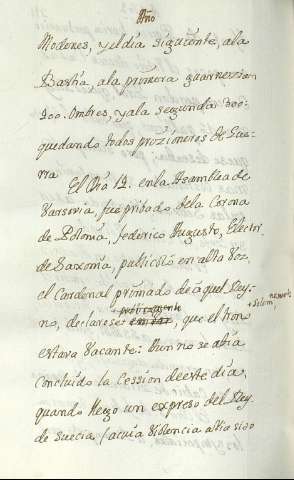 Año
Modones, y el dia siguiente, ala
Bastia ala primera guarnezion
900. Ombres, y ala segunda 300
quedando todos prozioneros de Gue-
rra
El Dia 12. enla Asamblea de
Varsovia, fue pribado dela Corona
de Polonia, federico Augusto, Elector
de Saxonia, publicolo en alta Voz,
el Cardenal primado de aquel Rey-
no, declarese que el trono
estava Vacante: Aun no se abia
Concluido la Cession de este dia,
quando llego un expreso del Rey
de Suecia (acuia Violencia abia sido